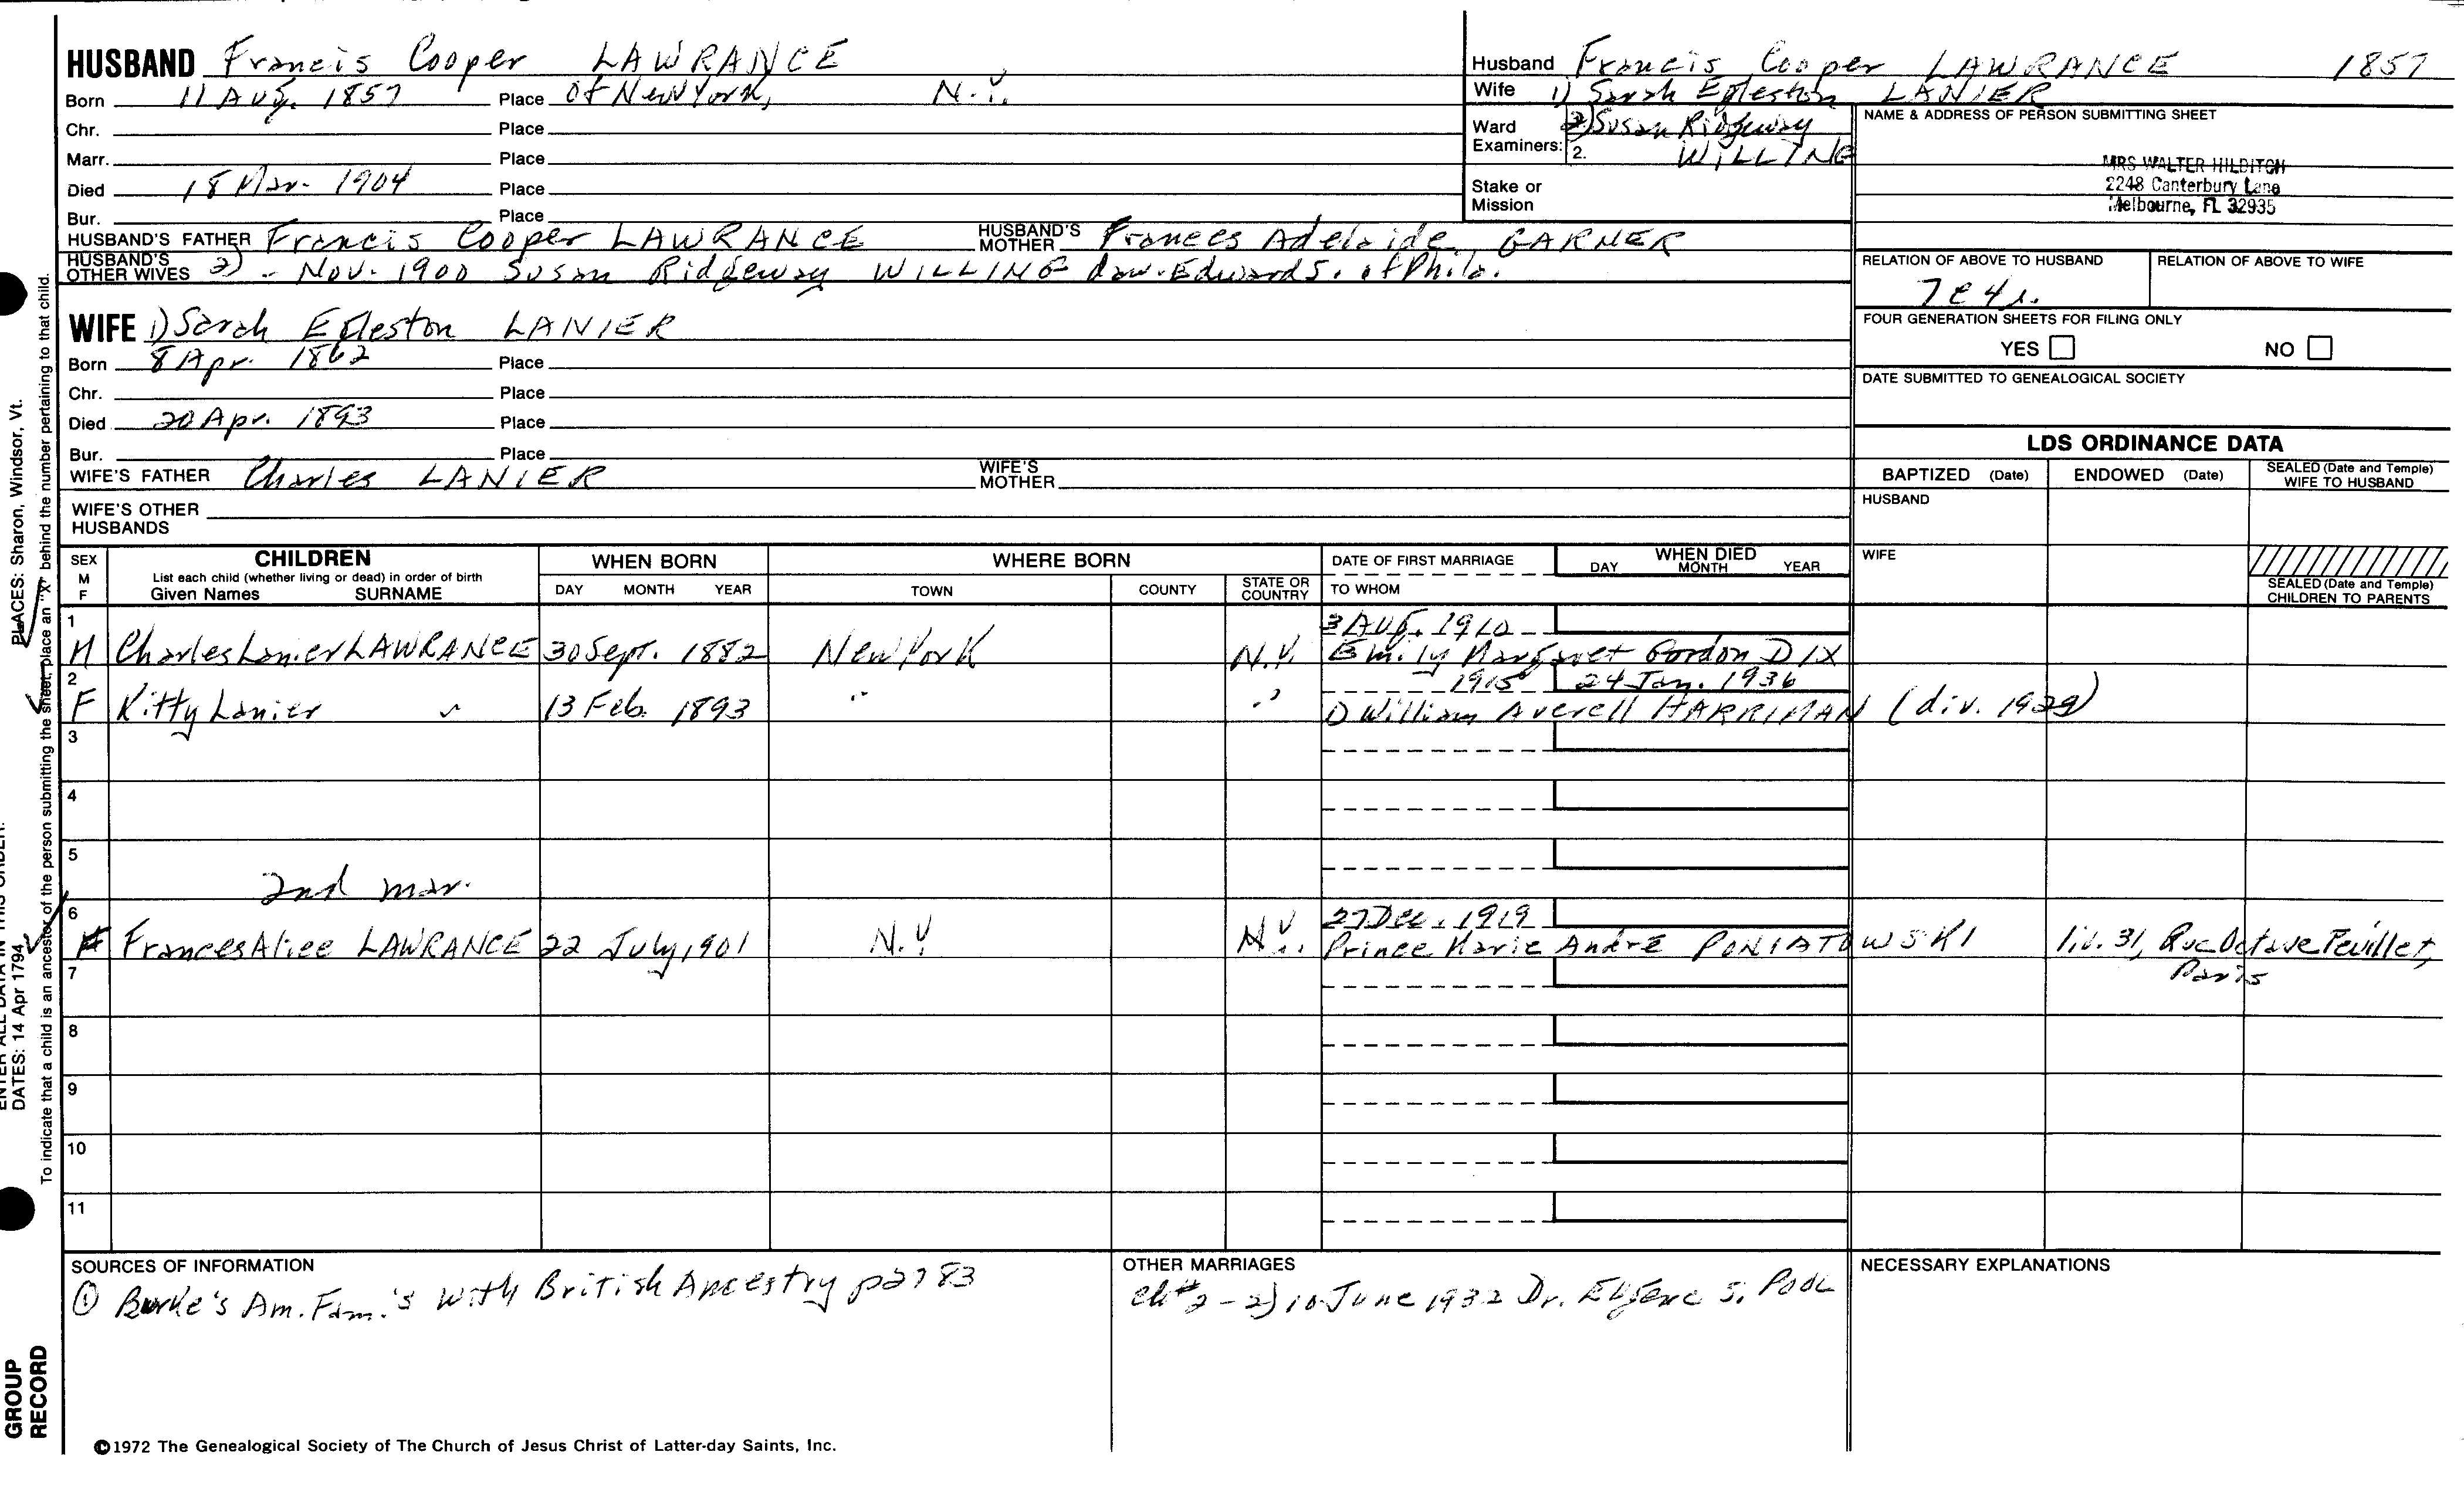 HUSBAND Francis Cooper LAWRANCE
Born 11 Aug. 1857 Place of New York, N.Y.
Chr. Place
Marr. Place
Died 18 Mar. 1904 Place
Bur. Place
HUSBAND'S FATHER Francis Cooper LAWRANCE HUSBAND'S MOTHER Frances Adelaide GARNER
HUSBAND'S OTHER WIVES 2) - Nov. 1900 Susan Ridgeway WILLING dau. Edward S. of Phila.
WIFE 1) Sarah Egleston LANIER
Born 8 Apr. 1862 Place
Chr. Place
Died 20 Apr. 1893 Place
Bur. Place
WIFE'S FATHER Charles LANIER WIFE'S MOTHER
WIFE'S OTHER HUSBANDS
Husband Francis Cooper LAWRANCE 1857
Wife 1) Sarah Egleston LANIER
Ward Examiners: 2) Susan Ridgeway
2. WILLING
Stake or Mission
NAME & ADDRESS OF PERSON SUBMITTING SHEET
MRS WALTER HILDITCH
2248 Canterbury Lane
Melbourne, FL 32935
RELATION OF ABOVE TO HUSBAND RELATION OF ABOVE TO WIFE
FOUR GENERATION SHEETS FOR FILING ONLY
YES NO
DATE SUBMITTED TO GENEALOGICAL SOCIETY
LDS ORDINANCE DATA
BAPTIZED (Date) ENDOWED (Date) SEALED (Date and Temple) WIFE TO HUSBAND
HUSBAND
WIFE
SEALED (Date and Temple) CHILDREN TO PARENTS
SEX M F
CHILDREN
List each child (whether living or dead) in order of birth
Given Names SURNAME
WHEN BORN
DAY MONTH YEAR
WHERE BORN
TOWN COUNTY STATE OR COUNTRY
DATE OF FIRST MARRIAGE
TO WHOM
WHEN DIED
DAY MONTH YEAR
1 3 Aug. 1910
M Charles Lanier LAWRANCE 30 Sept. 1882 New York N.Y. Emily Margaret Gordon DIX
2 1915 24 Jan. 1936
F Kitty Lanier " 13 Feb. 1893 " " 1) William Averell HARRIMAN (div. 1929)
3
4
5
2nd mar.
6 27 Dec. 1919
F Frances Alice LAWRANCE 22 July, 1901 N.Y N.Y. Prince Marie André PONIATOWSKI liv. 31, Rue Octave Feuillet,
7 Paris
8
9
10
11
SOURCES OF INFORMATION
① Burke's Am. Fam.'s With British Ancestry p2783
OTHER MARRIAGES
ch#2 - 2) 10 June 1932 Dr. Eugene S. Pool
NECESSARY EXPLANATIONS
©1972 The Genealogical Society of The Church of Jesus Christ of Latter-day Saints, Inc.
PLACES: Sharon, Windsor, Vt.
DATES: 14 Apr 1794
To indicate that a child is an ancestor of the person submitting the sheet, place an "X" behind the number pertaining to that child.
GROUP
RECORD